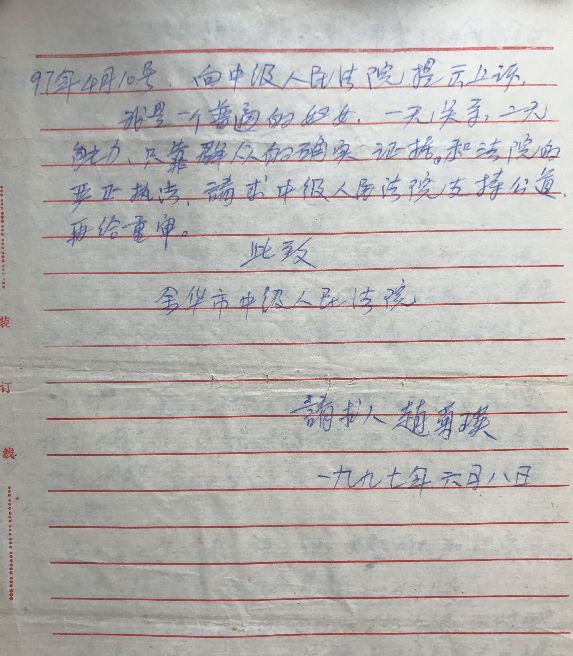 97年4月10号，向中级人民法院提出上诉，
我是一个普通的妇女，一无关系，二无
能力，只靠群众的确实证据。和法院的
严正执法，請求中级人民法院支持公道，
再给重审。
此致
金华市中级人民法院
請求人 趙菊瑛
一九九七年六月八日
装
订
线